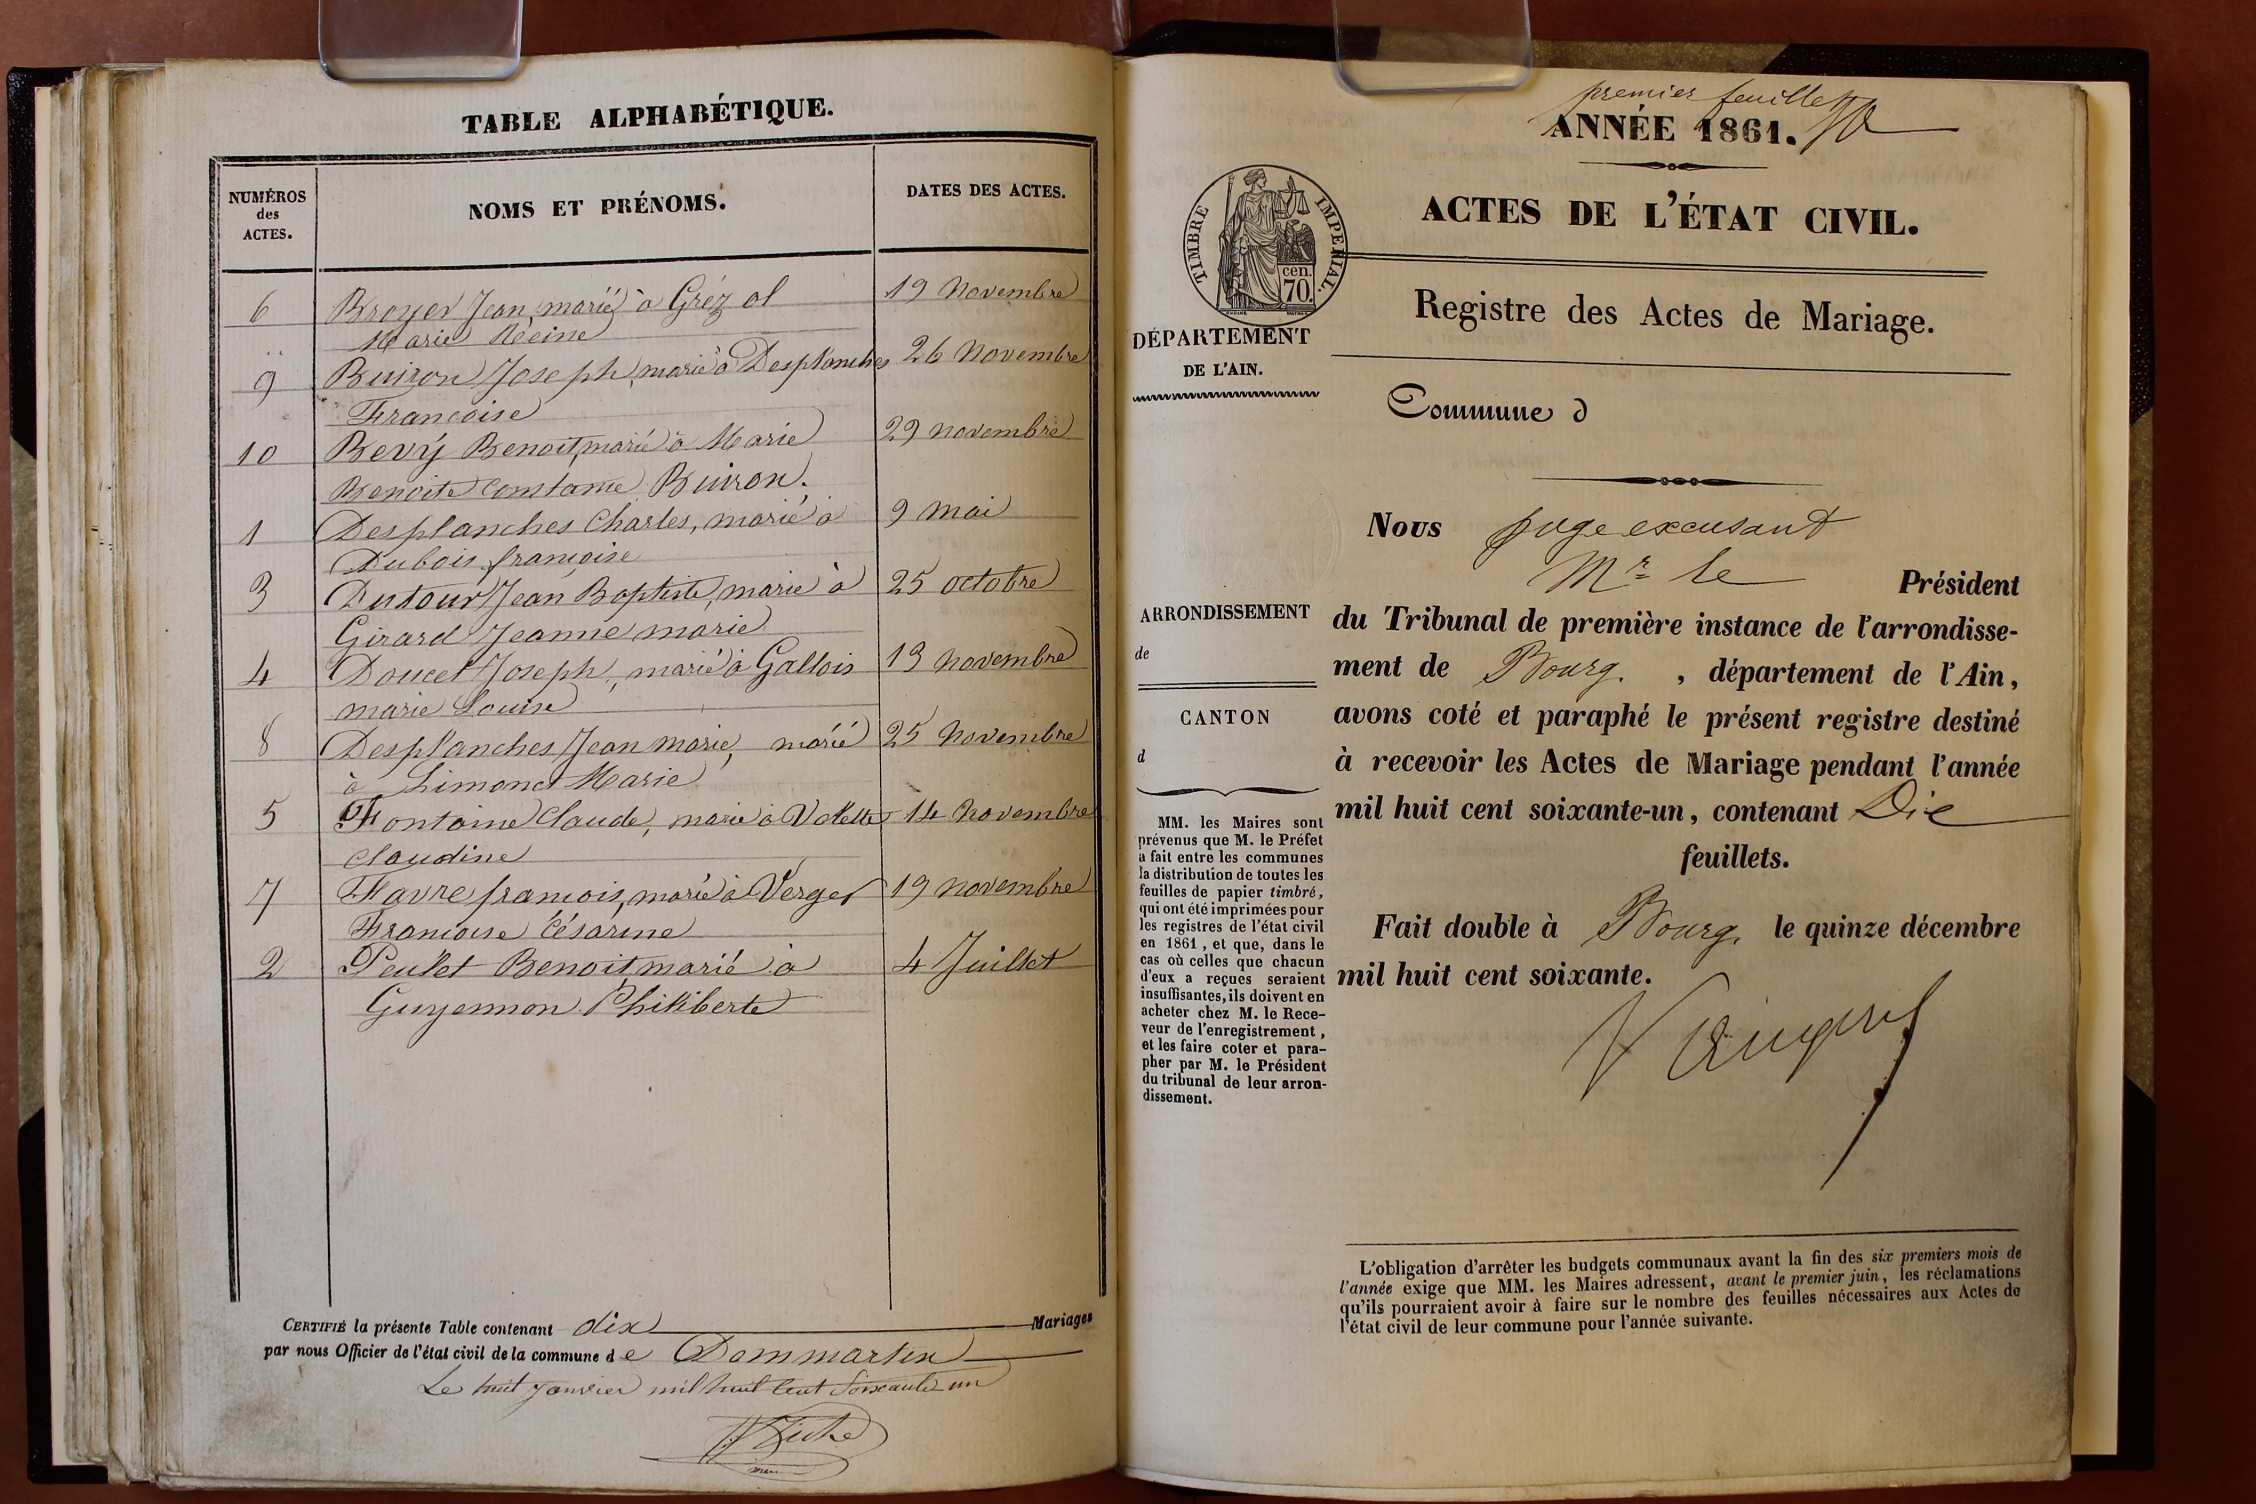 TABLE ALPHABÉTIQUE.
NUMÉROS des ACTES. NOMS ET PRÉNOMS. DATES DES ACTES.
6 Broyer Jean, marié à Gréz ol 19 Novembre
Marie Réine
9 Buiron Joseph, marié à Desplanches 26 Novembre
Francoise
10 Bevy Benoit, marié à Marie 29 novembre
Benoite Constame Buiron.
1 Desplanches Charles, marié à 9 mai
Dubois françoise
3 Dutour Jean Baptiste, marié à 25 octobre
Girard Jeanne marie
4 Doucet Joseph, marié à Gallois 13 novembre
marie Louise
8 Desplanches Jean marie, marié 25 Novembre
à Limonet Marie
5 Fontaine Claude, marié à Valette 14 Novembre
Claudine
7 Favre francois, marié à Verger 19 novembre
Francoise Césarine
2 Peulet Benoit marié à 4 Juillet
Guyennon Philiberte
CERTIFIÉ la présente Table contenant dix Mariages
par nous Officier de l'état civil de la commune de Dommartin
Le huit janvier mil huit cent soixante un
premier feuillet
ANNÉE 1861.
TIMBRE IMPERIAL.
cen.
70.
ACTES DE L'ÉTAT CIVIL.
Registre des Actes de Mariage.
DÉPARTEMENT
DE L'AIN.
Commune d
Nous juge excusant
Mr le Président
ARRONDISSEMENT
de
CANTON
d
du Tribunal de première instance de l'arrondisse-
ment de Bourg. , département de l'Ain,
avons coté et paraphé le présent registre destiné
à recevoir les Actes de Mariage pendant l'année
mil huit cent soixante-un, contenant Dix
feuillets.
Fait double à Bourg. le quinze décembre
mil huit cent soixante.
MM. les Maires sont
prévenus que M. le Préfet
a fait entre les communes
la distribution de toutes les
feuilles de papier timbré,
qui ont été imprimées pour
les registres de l'état civil
en 1861, et que, dans le
cas où celles que chacun
d'eux a reçues seraient
insuffisantes, ils doivent en
acheter chez M. le Rece-
veur de l'enregistrement,
et les faire coter et para-
pher par M. le Président
du tribunal de leur arron-
dissement.
L'obligation d'arrêter les budgets communaux avant la fin des six premiers mois de
l'année exige que MM. les Maires adressent, avant le premier juin, les réclamations
qu'ils pourraient avoir à faire sur le nombre des feuilles nécessaires aux Actes de
l'état civil de leur commune pour l'année suivante.